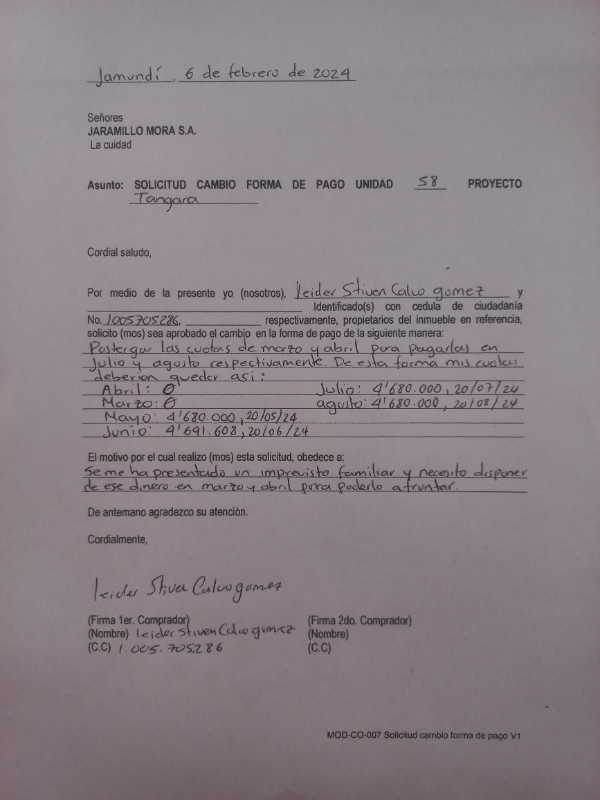 Jamundí, 6 de febrero de 2024
Señores
JARAMILLO MORA S.A.
La cuidad
Asunto: SOLICITUD CAMBIO FORMA DE PAGO UNIDAD 58 PROYECTO
Tangara
Cordial saludo,
Por medio de la presente yo (nosotros), Leider Stiven Calvo gomez y
Identificado(s) con cedula de ciudadanía
No. 1005705286, respectivamente, propietarios del inmueble en referencia,
solicito (mos) sea aprobado el cambio en la forma de pago de la siguiente manera:
Postergar las cuotas de marzo y abril para pagarlas en
Julio y agosto respectivamente. De esta forma mis cuotas
deberian quedar así:
Abril: 0 Julio: 4'680.000, 20/07/24
Marzo: 0 agosto: 4'680.000, 20/08/24
Mayo: 4'680.000, 20/05/24
Junio: 4'691.608, 20/06/24
El motivo por el cual realizo (mos) esta solicitud, obedece a:
Se me ha presentado un imprevisto familiar y necesito disponer
de ese dinero en marzo y abril para poderlo afrontar.
De antemano agradezco su atención.
Cordialmente,
Leider Stiven Calvo gomez
(Firma 1er. Comprador) (Firma 2do. Comprador)
(Nombre) Leider Stiven Calvo gomez (Nombre)
(C.C) 1.005.705286 (C.C)
MOD-CO-007 Solicitud cambio forma de pago V1